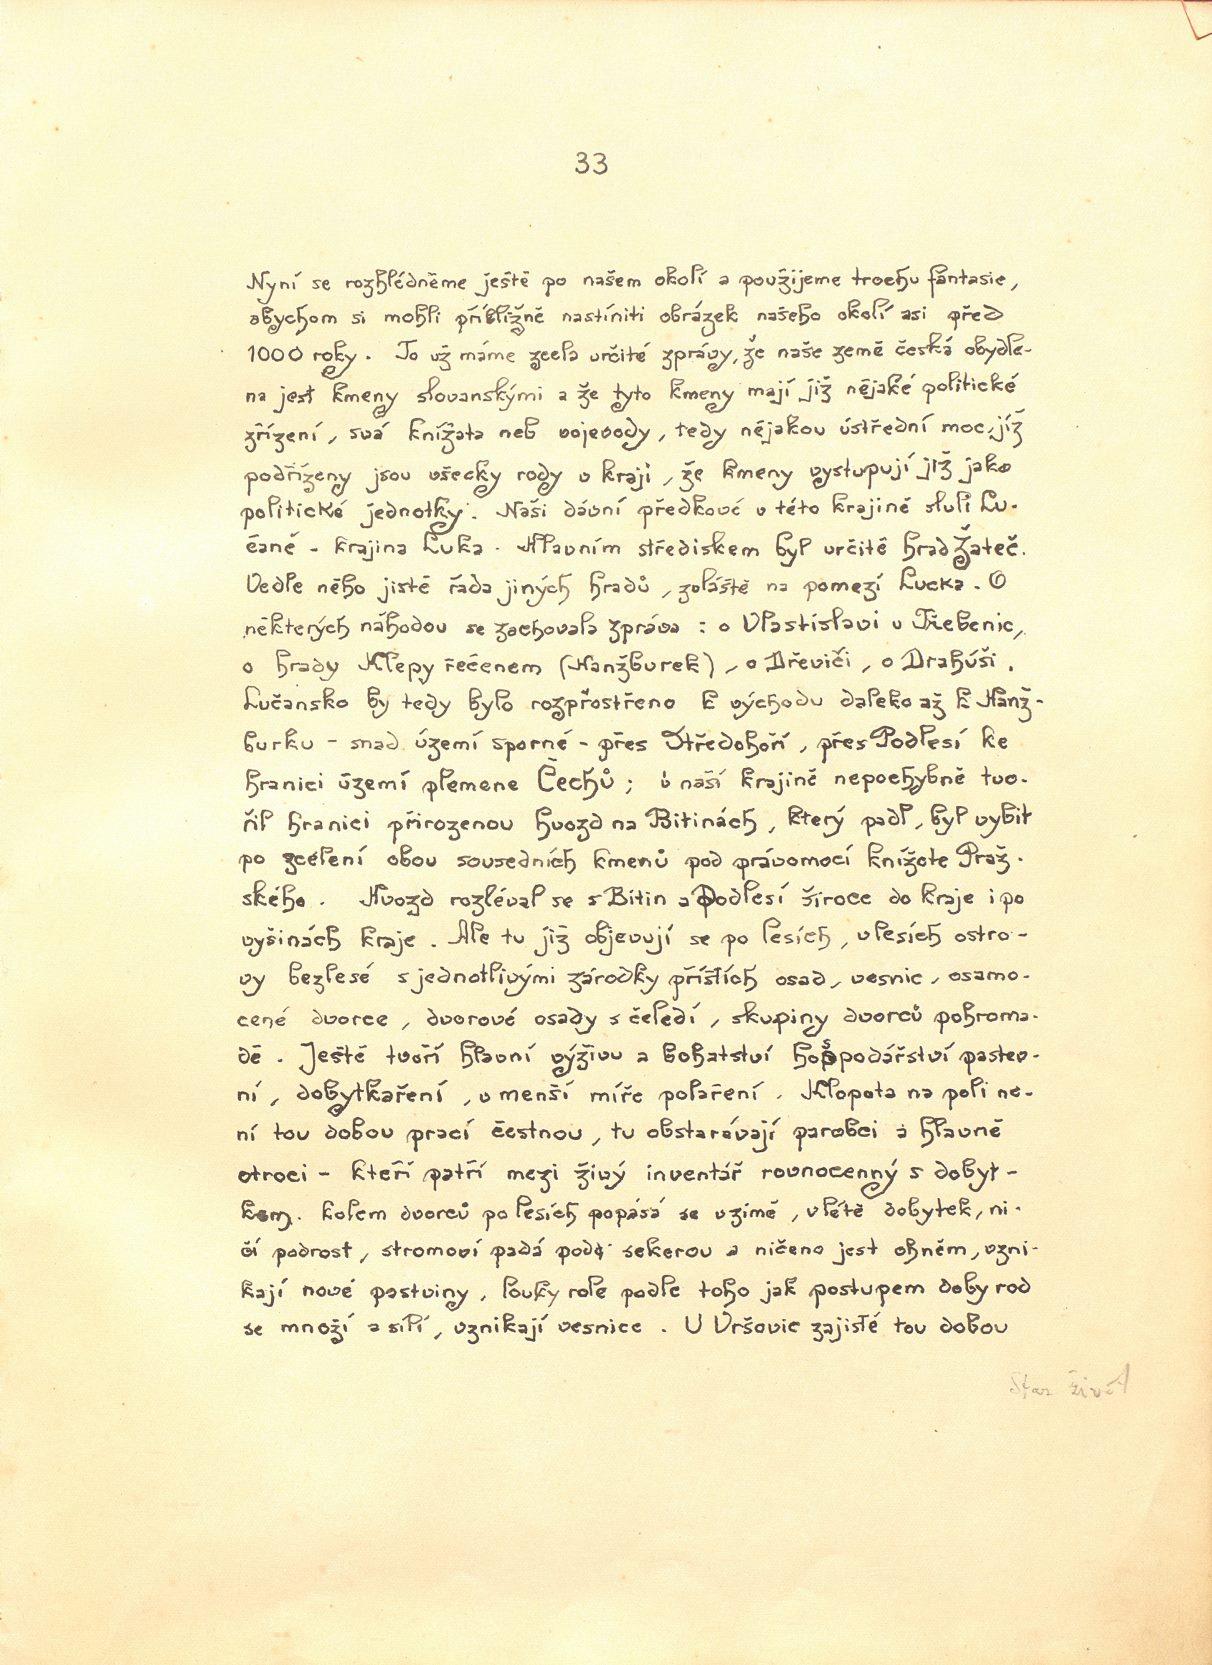 33
Nyní se rozhlédněme ještě po našem okolí a použijeme trochu fantasie,
abychom si mohli přibližně nastíniti obrázek našeho okolí asi před
1000 roky. To už máme zcela určité zprávy, že naše země česká obydle-
na jest kmeny slovanskými a že tyto kmeny mají již nějaké politické
zřízení, svá knížata neb vojevody, tedy nějakou ústřední moc, jíž
podřízeny jsou všecky rody v kraji, že kmeny vystupují již jako
politické jednotky. Naši dávní předkové v této krajině sluli Lu-
čané - krajina Luka. Hlavním střediskem byl určitě hrad Žateč.
Vedle něho jistě řada jiných hradů, zvláště na pomezí Lucka. O
některých náhodou se zachovala zpráva : o Vlastislavi u Třebenic,
o hrady Klepy řečenem (Hanžburek), o Dřeviči, o Drahúši.
Lučansko by tedy bylo rozprostřeno k východu daleko až k Hanž-
burku - snad území sporné - přes Středohoří, přes Podlesí ke
hranici území plemene Čechů ; v naší krajině nepochybně tvo-
řil hranici přirozenou hvozd na Bitinách, který padl, byl vybit
po zcelení obou sousedních kmenů pod právomocí knížete Praž-
ského. Hvozd rozléval se s Bitin a Podlesí široce do kraje i po
vyšinách kraje. Ale tu již objevují se po lesích, v lesích ostro-
vy bezlesé s jednotlivými zárodky příštích osad, vesnic, osamo-
cené dvorce, dvorové osady s čeledí, skupiny dvorců pohroma-
dě. Ještě tvoří hlavní výživu a bohatství hospodářství pastev-
ní, dobytkaření, v menší míře polaření. Klopota na poli ne-
ní tou dobou prací čestnou, tu obstarávají parobci a hlavně
otroci - kteří patří mezi živý inventář rovnocenný s dobyt-
kem. Kolem dvorců po lesích popásá se v zimě, v létě dobytek, ni-
čí podrost, stromoví padá pod sekerou a ničeno jest ohněm, vzni-
kají nové pastviny, louky role podle toho jak postupem doby rod
se množí a sílí, vznikají vesnice. U Vršovic zajisté tou dobou